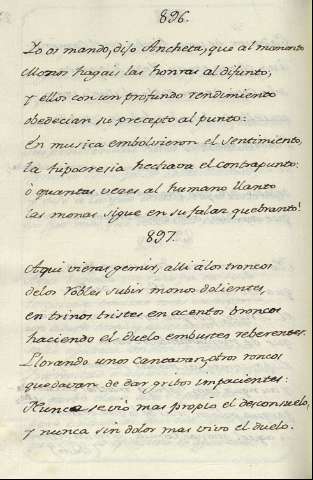 896.
Yo os mando, dijo Ancheta, que al momento
Monos hagais las honras al difunto,
y ellos con un profundo rendimiento
obedecian su precepto al punto:
En musica embolvieron el sentimiento,
la hipocresia hechava el contrapunto:
ò quantas vezes al humano llanto
las monas sigue en su falaz quebranto!
897.
Aqui vieras gemir, alli á los troncos
delos robles subir monos dolientes,
en trinos tristes en acentos broncos
haciendo el duelo embustes reberentes.
Llorando unos cantavan, otros roncos
quedavan de dar gritos impacientes:
Nunca se vio mas propio el desconsuelo,
y nunca sin dolor mas vivo el duelo.